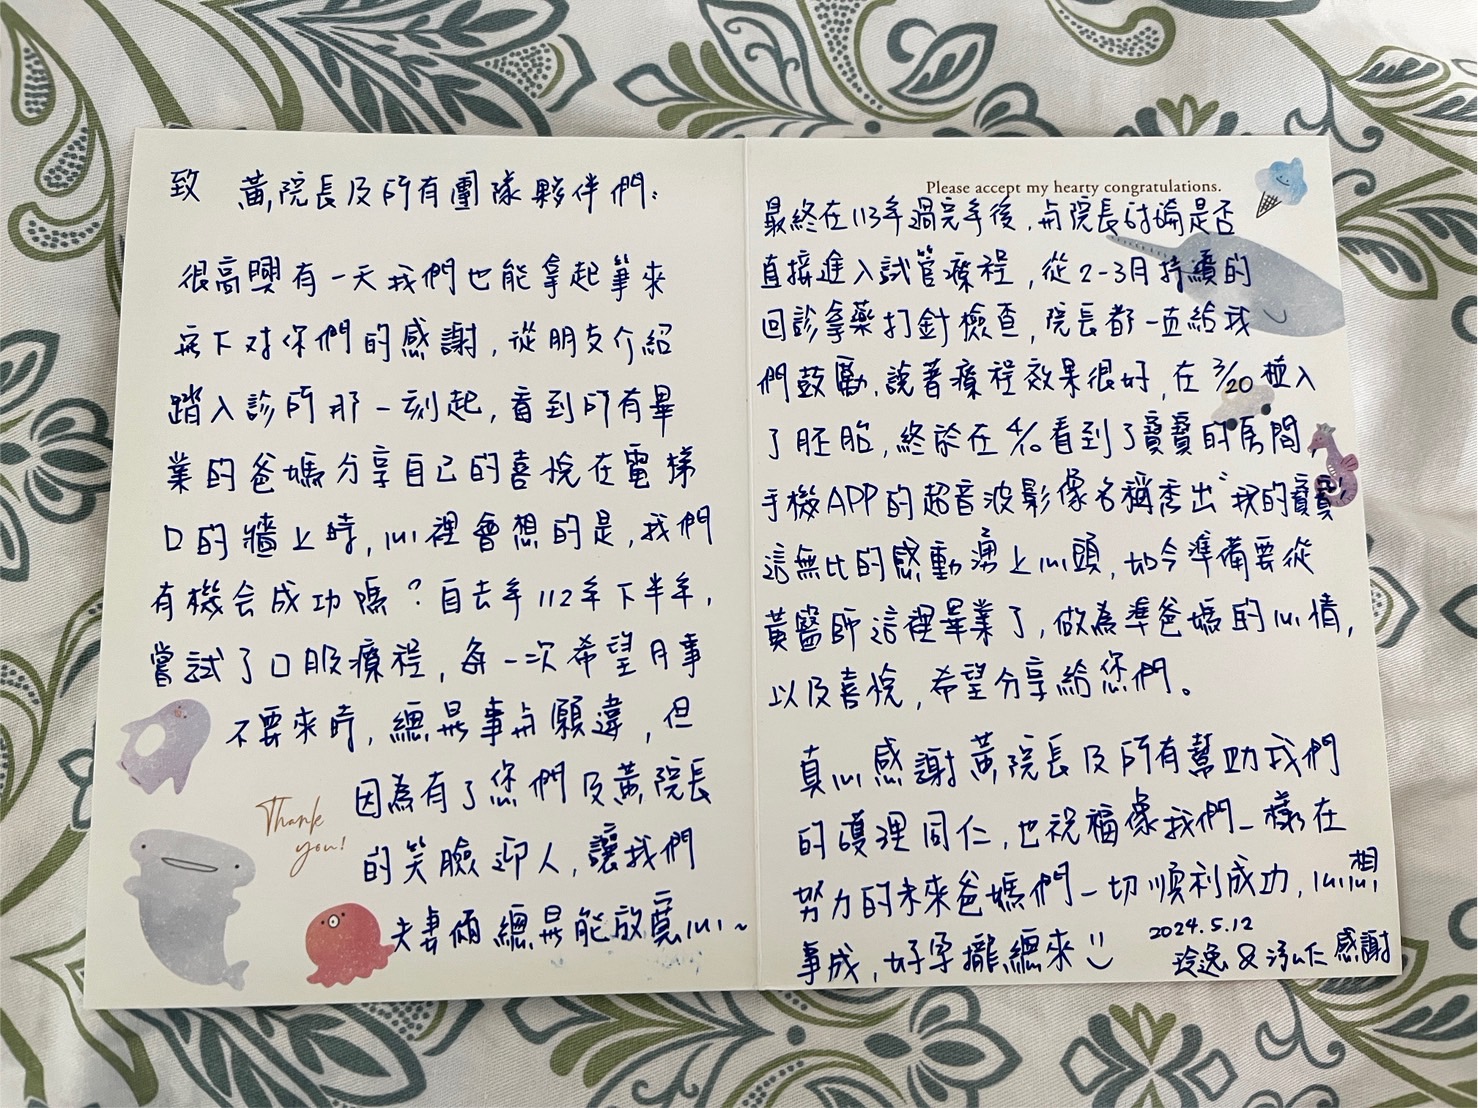 致 黃院長及所有團隊夥伴們：
很高興有一天我們也能拿起筆來
寫下对你們的感謝，從朋友介紹
踏入診所那一刻起，看到所有畢
業的爸媽分享自己的喜悅在電梯
口的牆上時，心裡會想的是，我們
有機会成功嗎？自去年112年下半年，
嘗試了口服療程，每一次希望月事
不要來時，總是事与願違，但
因為有了您們及黃院長
的笑臉迎人，讓我們
夫妻倆總是能放寬心~
Thank
you!
Please accept my hearty congratulations.
最終在113年過完年後，与院長討論是否
直接進入試管療程，從2-3月持續的
回診拿藥打針檢查，院長都一直給我
們鼓勵，說著療程效果很好，在3/20植入
了胚胎，終於在4/10看到了寶寶的房間。
手機APP的超音波影像名稱秀出"我的寶寶"
這無比的感動湧上心頭，如今準備要從
黃醫師這裡畢業了，做為準爸媽的心情，
以及喜悅，希望分享給您們。
真心感謝黃院長及所有幫助我們
的護理同仁，也祝福像我們一樣在
努力的未來爸媽們一切順利成功，心想
事成，好孕攏總來
2024.5.12
玲逸 & 感謝